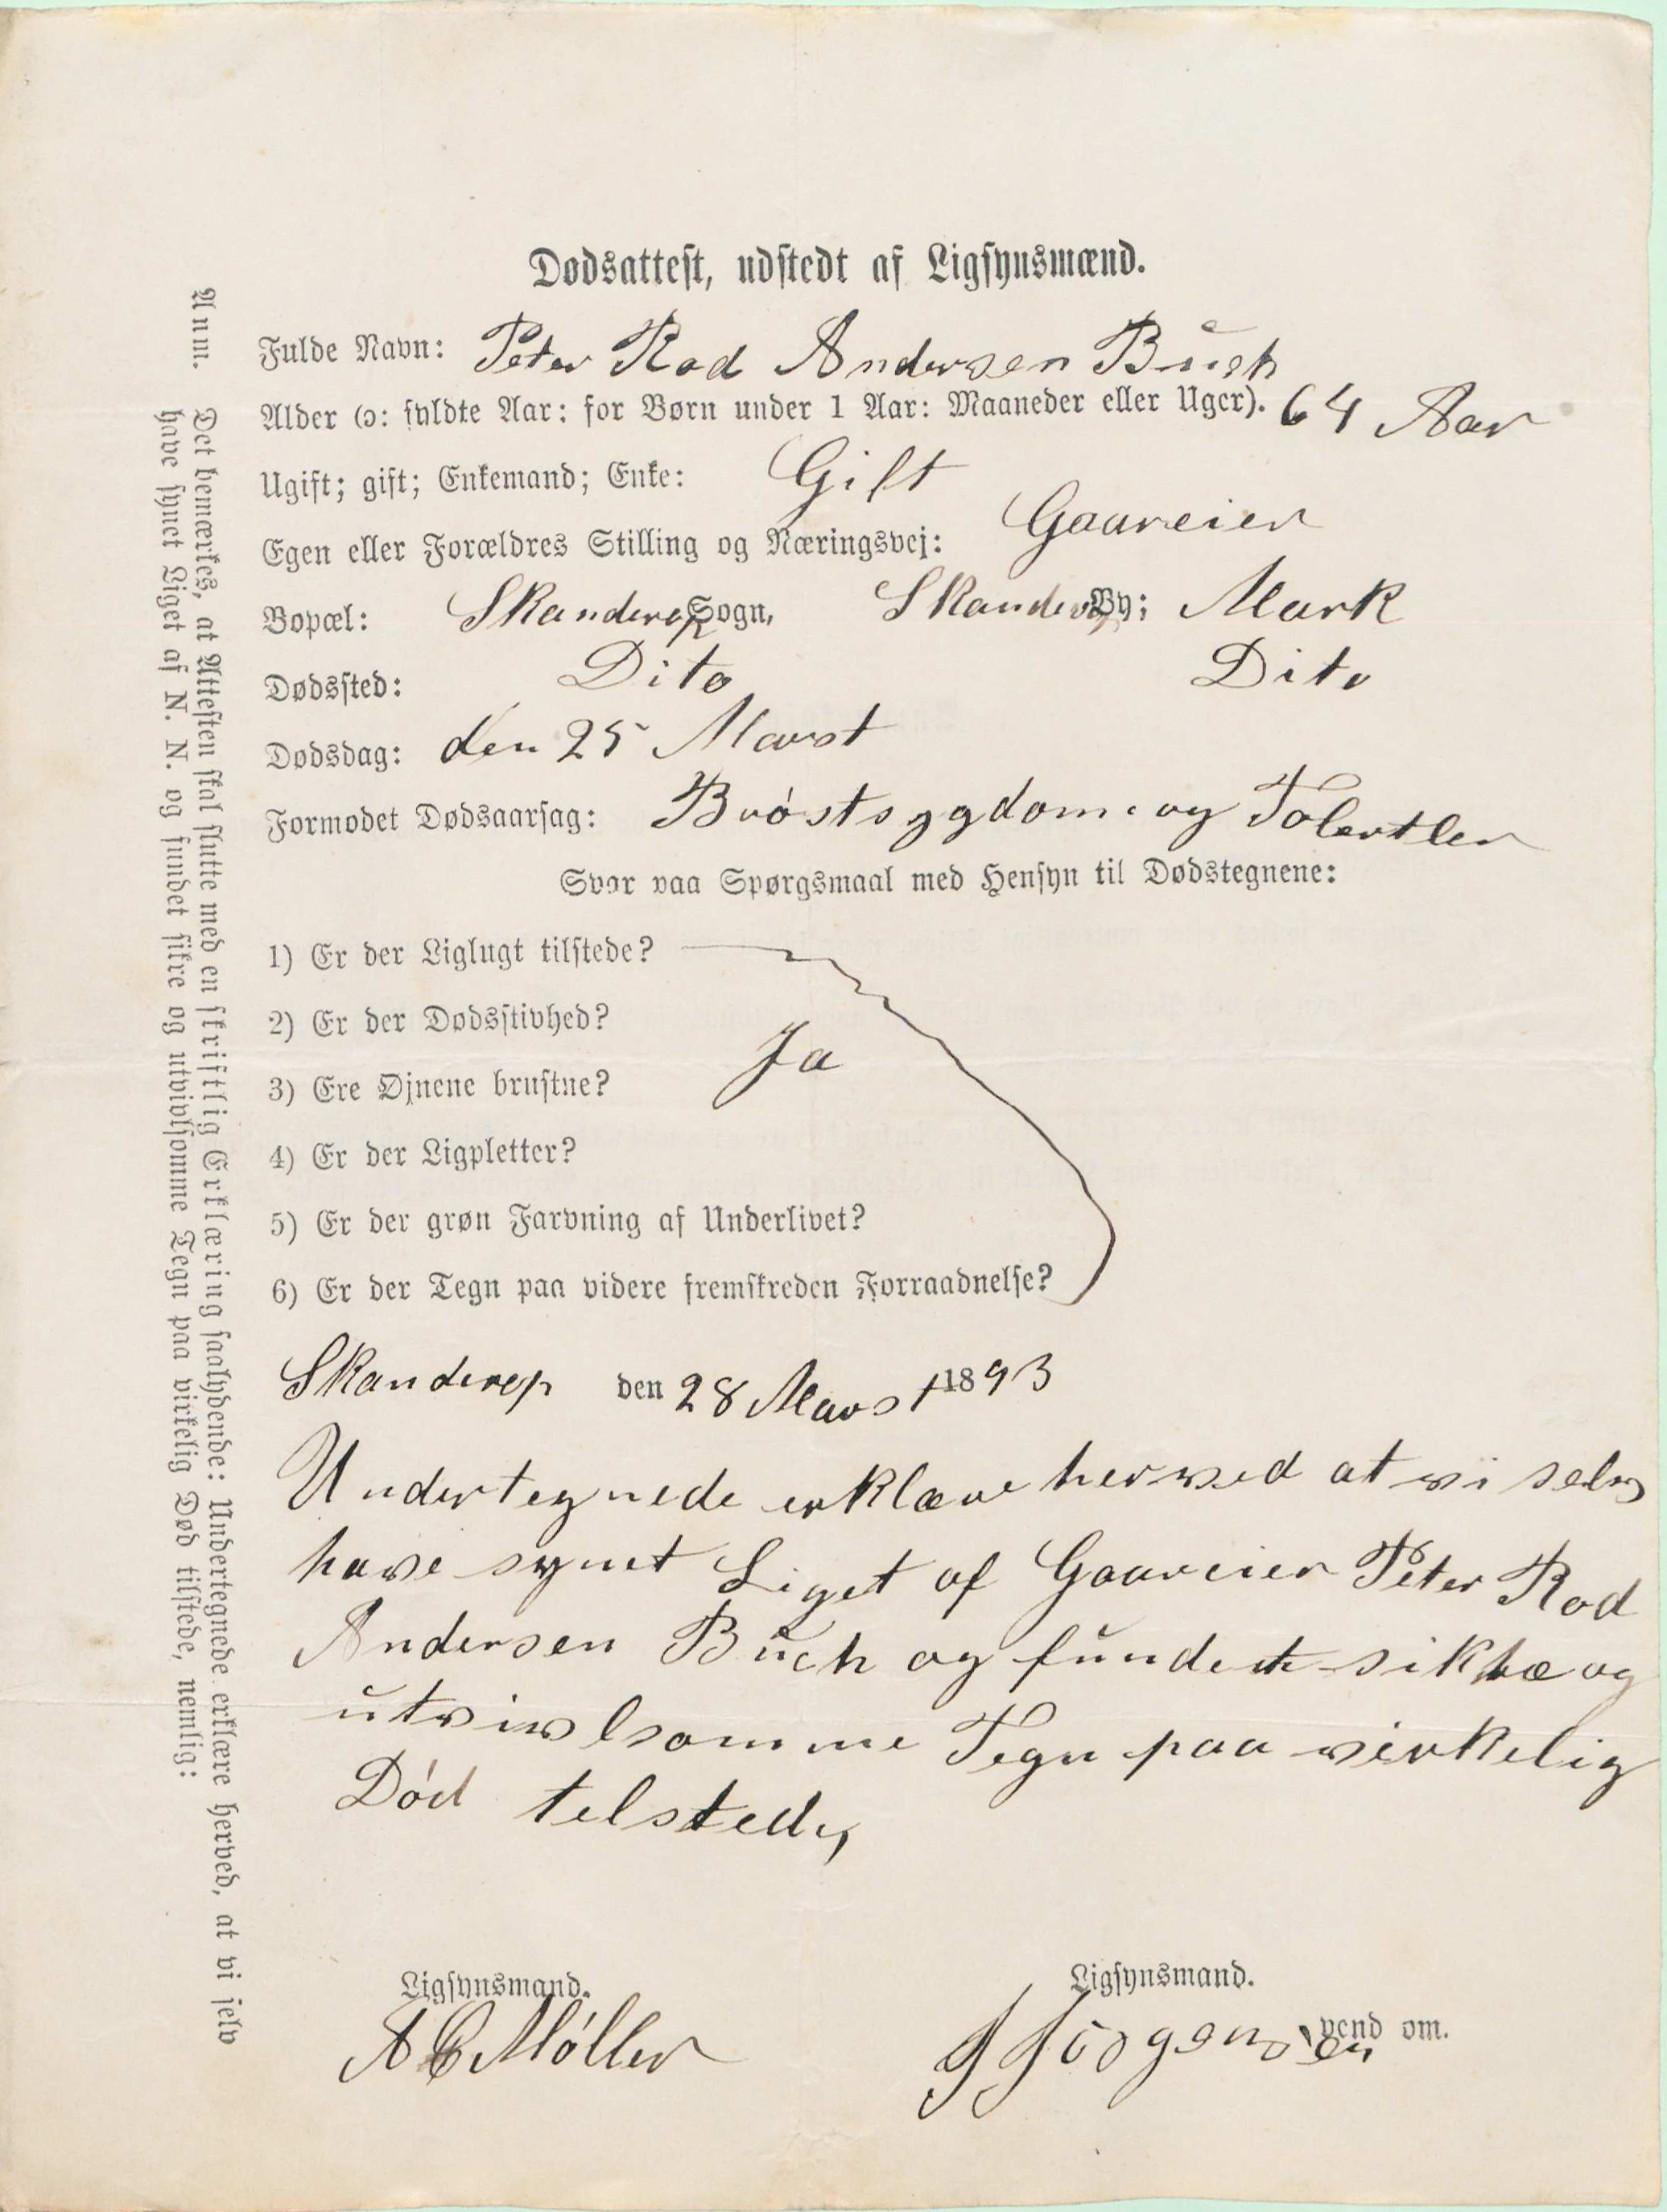 Dødsattest, udstedt af Ligsynsmænd.
Fulde Navn: Peter Rod Andersen Buch
Alder (ɔ: fyldte Aar: for Børn under 1 Aar: Maaneder eller Uger). 64 Aar
Ugift; gift; Enkemand; Enke: Gift
Egen eller Forældres Stilling og Næringsvej: Gaareier
Bopæl: Skanderop Sogn, Skanderop By; Mark
Dødssted: Dito Dito
Dødsdag: den 25 Marst
Formodet Dødsaarsag: Bróstsygdom og
Svar paa Spørgsmaal med Hensyn til Dødstegnene:
1) Er der Liglugt tilstede?
2) Er der Dødsstivhed?
Ja
3) Ere Øjnene brustne?
4) Er der Ligpletter?
5) Er der grøn Farvning af Underlivet?
6) Er der Tegn paa videre fremskreden Forraadnelse?
Skanderop den 28 Marst 1893
Undertegnede erklære herved at vi selv
have synet Liget af Gaareier Peter Rod
Andersen Buch og fundet sikre og
utvivlsomme Tegn paa virkelig
Død telstede,
Ligsynsmand. Ligsynsmand.
A C Móller J Jörgensen
vend om.
Anm. Det bemærkes, at Attesten skal slutte med en skriftlig Erklæring saalydende: Undertegnede erklære herved, at vi selv
have synet Liget af N. N. og fundet sikre og utvivlsomme Tegn paa virkelig Død tilstede, nemlig: